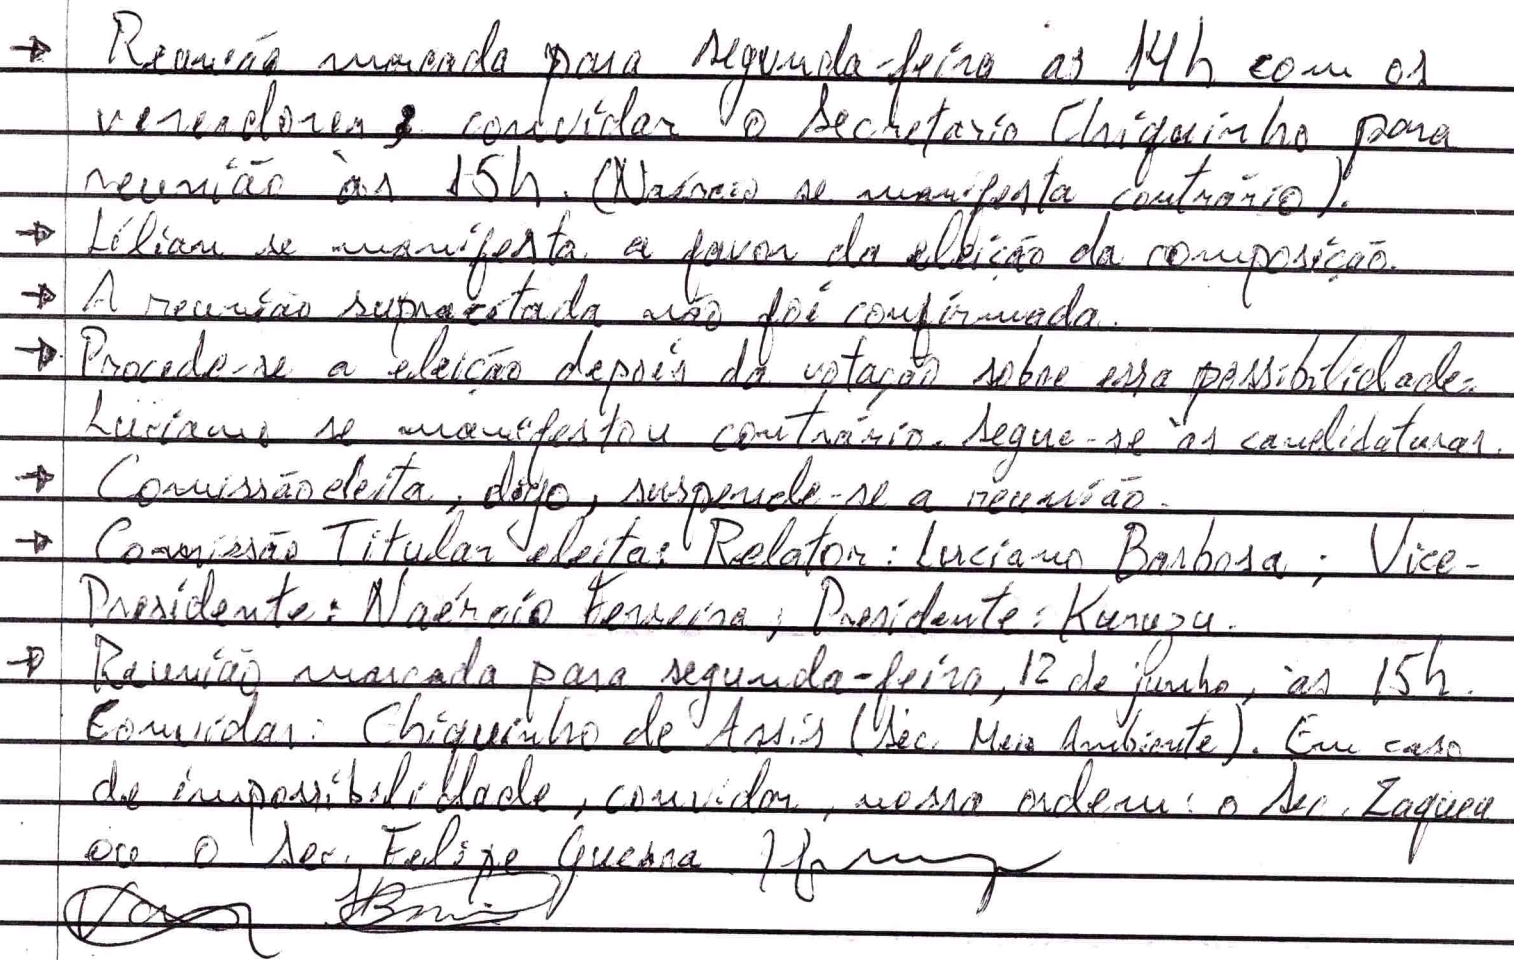 → Reunião marcada para segunda-feira as 14h com os
vereadores; convidar o Secretario Chiquinho para
reunião às 15h. (Naércio se manifesta contrário).
→ Lílian se manifesta a favor da eleição da composição.
→ A reunião supracitada não foi confirmada.
→ Procede-se a eleição depois da votação sobre essa possibilidade.
Luciano se manifestou contrário. Segue-se às candidaturas.
→ Comissão eleita, digo, suspende-se a reunião.
→ Comissão Titular eleita: Relator: Luciano Barbosa; Vice-
Presidente: Naércio Ferreira; Presidente: Kuruzu.
→ Reunião marcada para segunda-feira, 12 de junho, às 15h.
Convidar: Chiquinho de Assis (Sec. Meio Ambiente). Em caso
de impossibilidade, convidar, nessa ordem: o Sec. Zaqueu
ou o Sec. Felipe Guerra